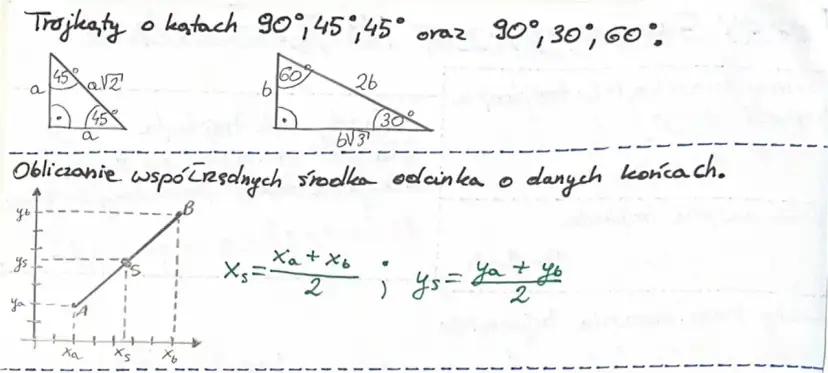 Trójkąty o kątach 90°, 45°, 45° oraz 90°, 30°, 60°.
45° a√2
a
45°
a
60° 2b
b
30°
b√3
Obliczanie współrzędnych środka odcinka o danych końcach.
yb B
ys S
ya A
xa xs xb
xs = (xa + xb) / 2 ; ys = (ya + yb) / 2